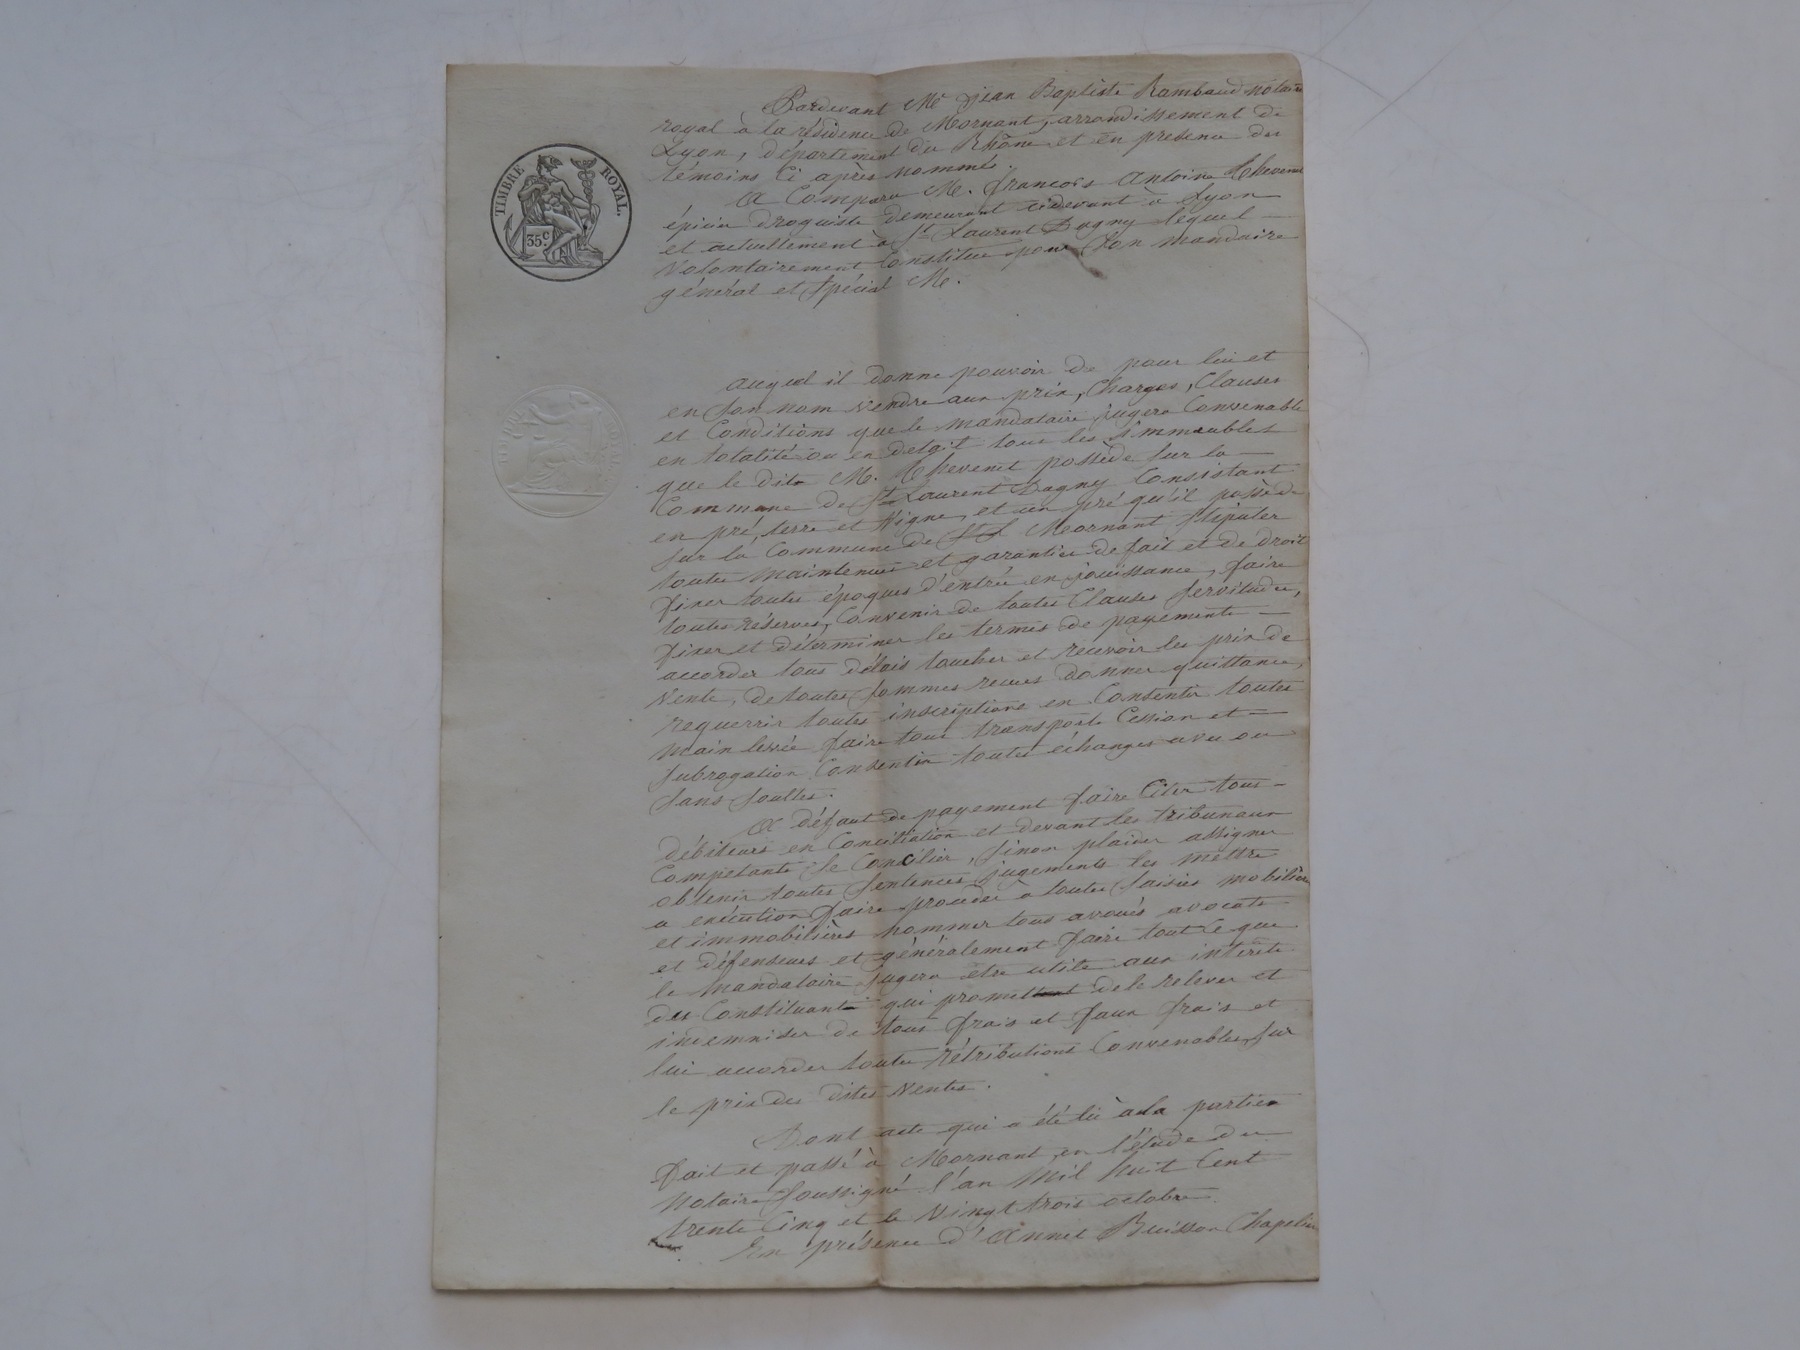 TIMBRE ROYAL.
35c
Pardevant Me jean Baptiste Rambaud notaire
royal à la résidence de Mornant, arrondissement de
Lyon, département du Rhône et en presence des
témoins ci après nommés.
A Comparu M. françois Antoine Thevenet
épicier droguiste demeurant cidevant à Lyon
et actuellement à St Laurent Dagny lequel
volontairement Constitue pour Son mandaire
général et Spécial Me.
auquel il donne pouvoir de pour lui et
en Son nom vendre aux prix, Charges, Clauses
et Conditions que le mandataire jugera Convenable
en totalité ou en detail tous les immeubles
que le dit M. Thevenet possède Sur la
Commune de St Laurent Dagny Consistant
en pré, terre et Vigne, et un pré qu'il possède
Sur la Commune de Mornant Stipuler
toutes maintenues et garanties de fait et de droit
fixer toutes époques d'entrée en jouissance, faire
toutes réserves, Convenir de toutes Clauses Servitudes,
fixer et déterminer les termes de payements
accorder tous délais toucher et recevoir les prix de
Vente, de toutes Sommes recues donner quittance,
requerrir toutes inscriptions en Consentir toutes
main levée faire tous transports Cession et
Subrogation Consentir toutes échanges avec ou
Sans Soultes.
A défaut de payement faire Citer tous
débiteurs en Conciliation et devant les tribunaux
Compétants Se Concilier, Sinon plaider assigner
obtenir toutes Sentences jugements les mettre
a exécution faire procéder à toutes Saisies mobilières
et immobilières nommer tous avoués avocats
et défenseurs et généralement faire tout Ce que
le mandataire jugera etre utile aux intérêts
des Constituant qui promet de le relever et
indemniser de tous frais et faux frais et
lui accorder toutes rétributions Convenables Sur
le prix des dites Ventes.
Dont acte qui a été lù à la parties
fait et passé à Mornant en l'étude du
Notaire Soussigné l'an Mil huit Cent
trente Cinq et le Vingt trois octobre.
En présence d'Annet Buisson Chapelier